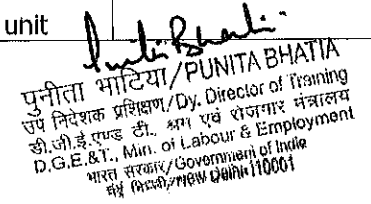 unit
पुनीता भाटिया/PUNITA BHATIA
उप निदेशक प्रशिक्षण/Dy. Director of Training
डी.जी.ई.एण्ड टी., श्रम एवं रोजगार मंत्रालय
D.G.E.&T., Min. of Labour & Employment
भारत सरकार/Government of India
नई दिल्ली/New Delhi-110001